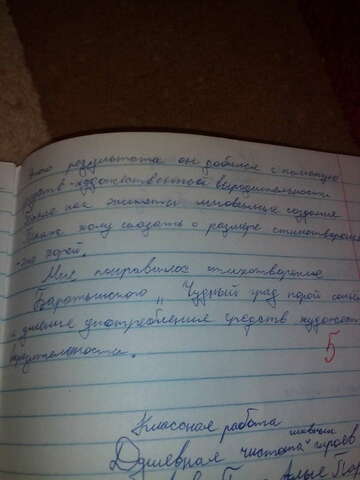 Этого результата он добился с помощью
средств художественной выразительности
таких как эпитеты мгновенных создания
Также хочу сказать о размере стихотворения
- это хорей.
Мне понравилось стихотворение
Баратынского „Чудный град порой сольё
употребления средств художест
выразительности.
5
Классная работа
Душевная чистота героев
Алые Пар